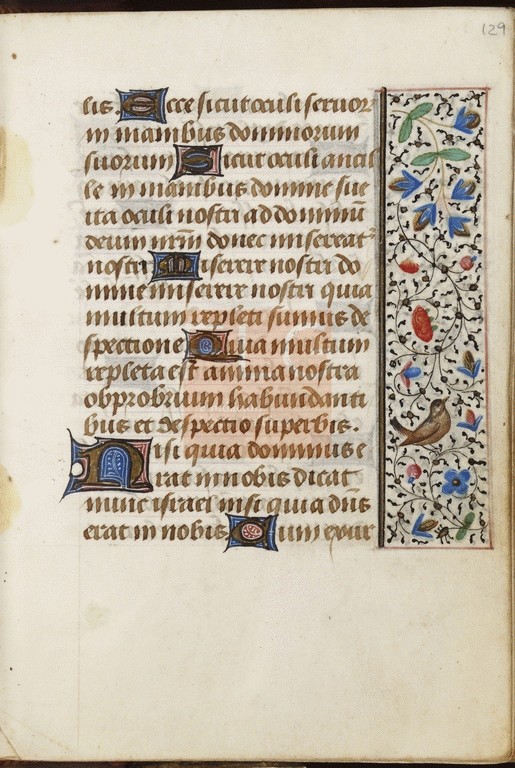 129
lis. Ecce sicut oculi servor᷑
in manibus dominorum
suorum Sicut oculi ancil
le in manibus domine sue
ita oculi nostri ad dominū
deum nrm̄ donec misereat᷑
nostri Miserere nostri do
mine miserere nostri quia
multum repleti sumus de
spectione Quia multum
repleta est anima nostra
obprobrium habundanti
bus et despectio superbis.
Nisi quia dominus e
rat in nobis dicat
nunc israel nisi quia dn̄s
erat in nobis Cum exur